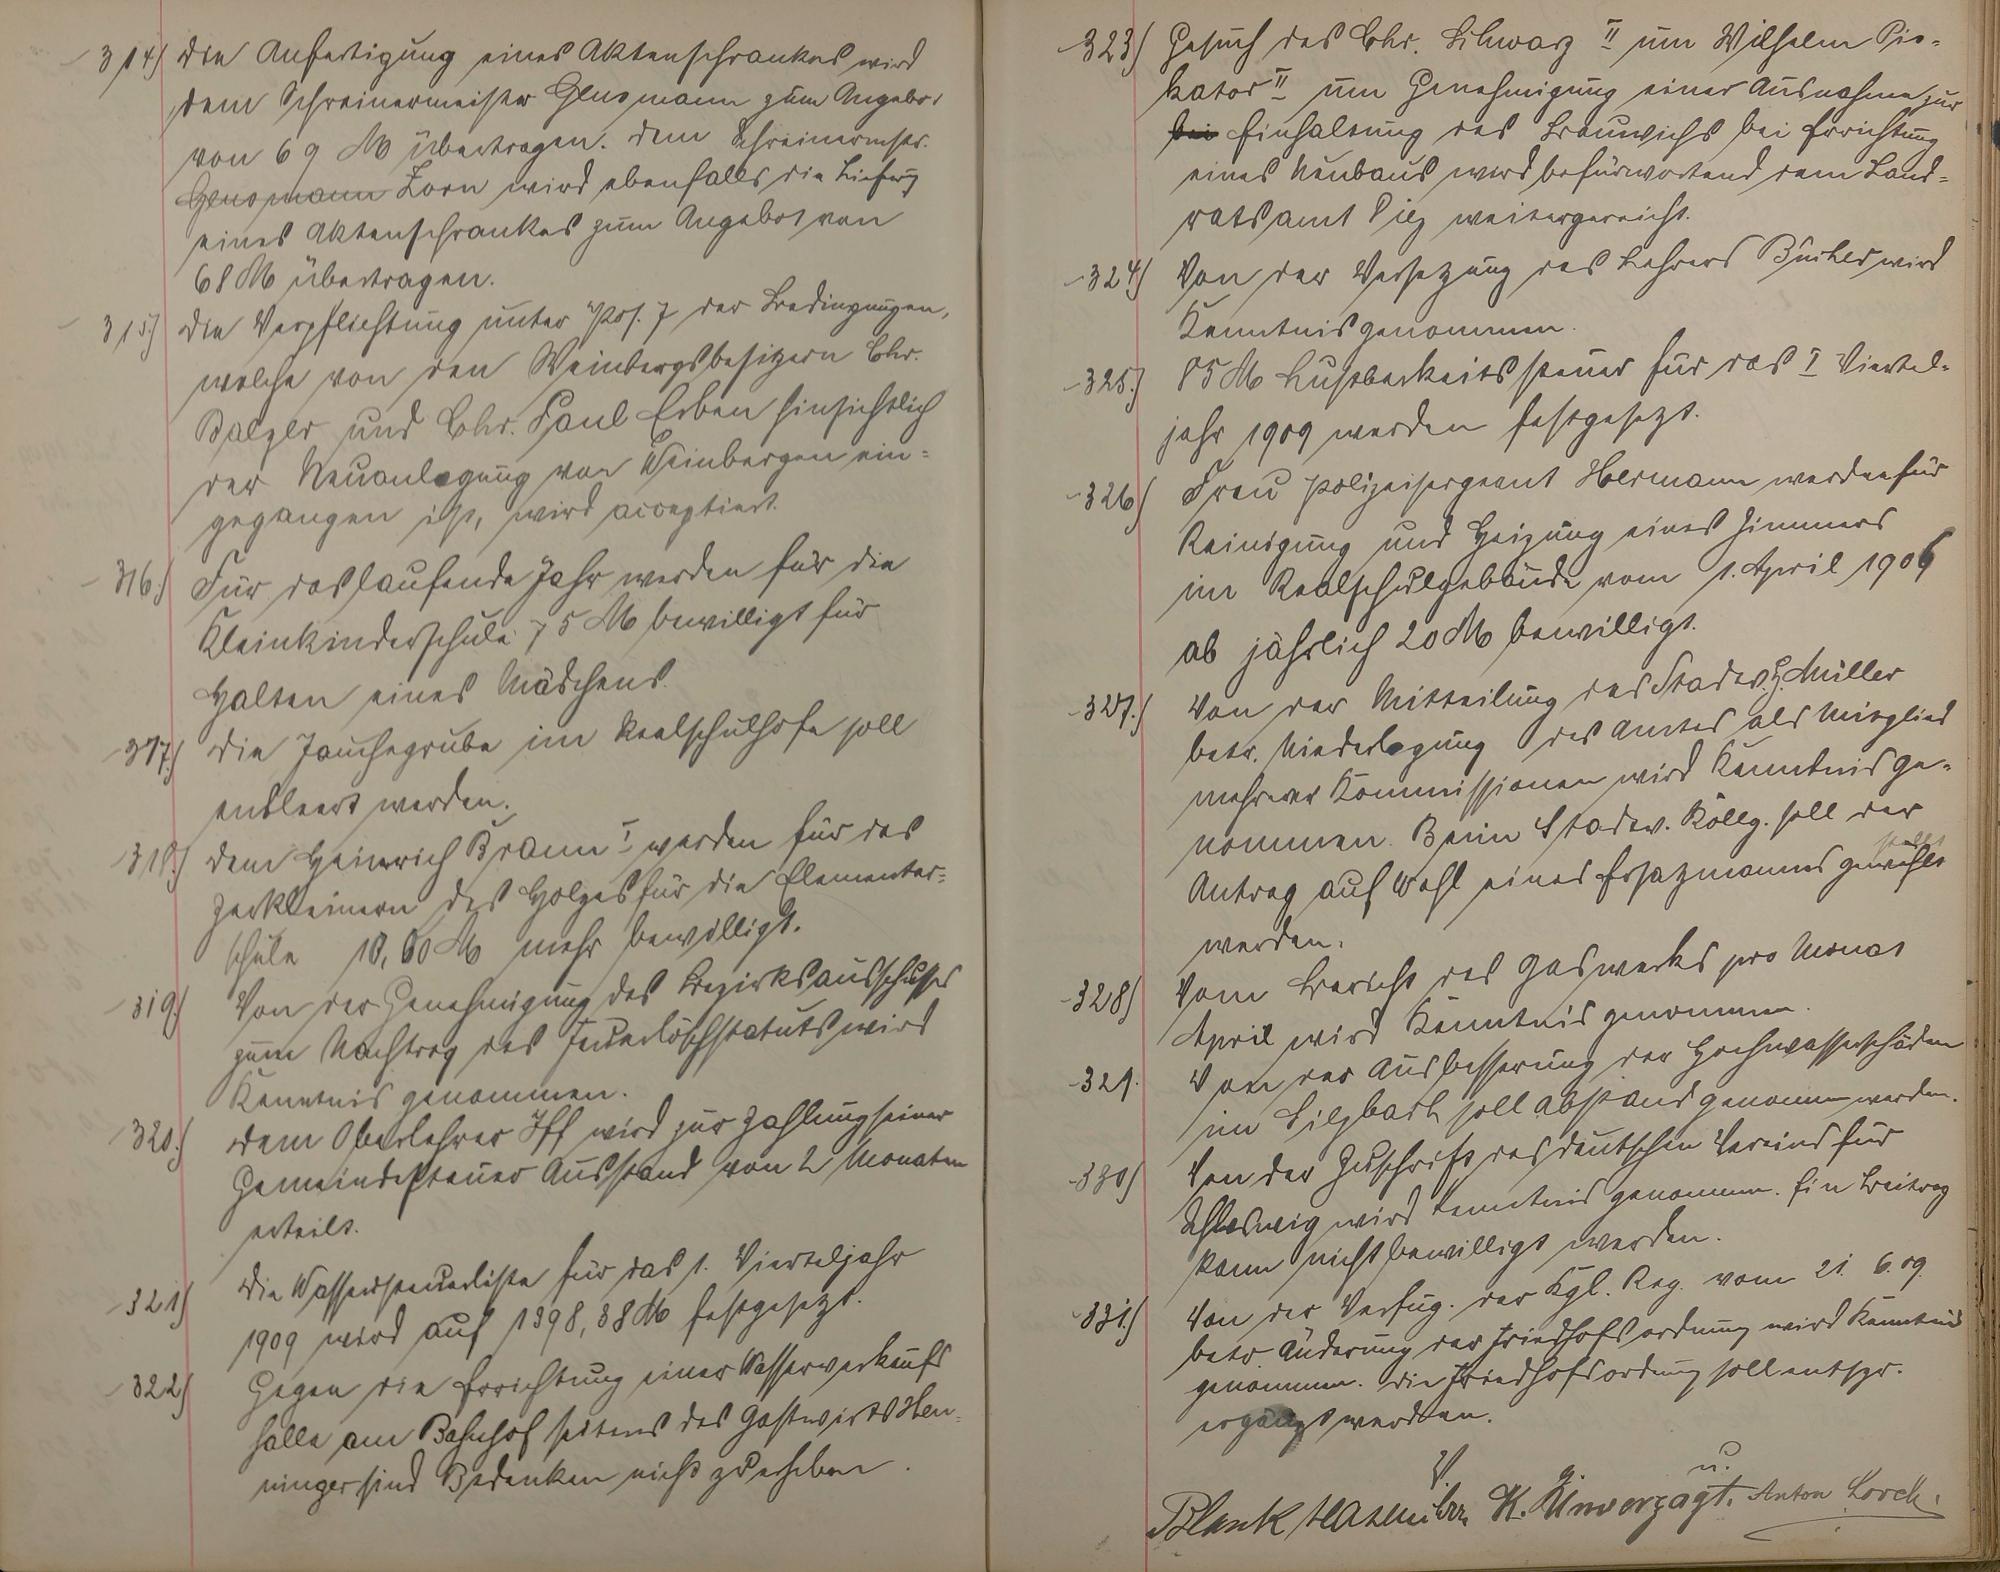 314) Die Anfertigung eines Aktenschrankes wird
dem Schreinermeister Glusmann zum Angebot
von 69 M übertragen. Dem Schreinermstr.
Glusmann Zorn wird ebenfalls die Lieferg
eines Aktenschrankes zum Angebot von
68 M übertragen.
315) Die Verpflichtung unter Pos. 7 der Bedingungen,
welche von den Weinbergsbesitzern Chr.
Balzer und Chr. Paul Erben hinsichtlich
der Neuanlegung von Weinbergen ein=
gegangen ist, wird acceptiert.
316.) Für das laufende Jahr werden für die
Kleinkinderschule 75 M bewilligt für
Halten eines Mädchens.
317.) Die Jauchegrube im Realschulhofe soll
entleert werden.
318.) Dem Heinrich Bramm I werden für das
Zerkleinern des Holzes für die Elementar=
schule 10,60 M mehr bewilligt.
319) Von der Genehmigung des Bezirksausschusses
zum Nachtrag des Feuerlöschstatuts wird
Kenntnis genommen.
320.) Dem Oberlehrer Iff wird zur Zahlung seiner
Gemeindesteuer Ausstand von 2 Monaten
erteilt.
321) Die Wassersteuerliste für das 1. Vierteljahr
1909 wird auf 1398,38 M festgesetzt.
322) Gegen die Errichtung einer Wasserverkaufs
halle am Bahnhof seitens des Gastwirts Hen=
ninger sind Bedenken nicht zu erheben.
323) Gesuch des Chr. Schwarz II und Wilhelm Pis=
kator II um Genehmigung einer Ausnahme zur
bei Einhaltung des Bauwichs bei Errichtung
eines Neubaus wird befürwortend dem Land=
ratsamt Diez weitergereicht.
324) Von der Versetzung des Lehrers Bücher wird
Kenntnis genommen.
325.) 85 M Lustbarkeitssteuer für das I Viertel=
jahr 1909 werden festgesetzt.
326) Frau Polizeisergeant Hermann werden für
Reinigung und Heizung eines Zimmers
im Realschulgebäude vom 1. April 1906
ab jährlich 20 M bewilligt.
327.) Von der Mitteilung des Stadtv. H. Müller
betr. Niederlegung des Amtes als Mitglied
mehrerer Kommissionen wird Kenntnis ge=
nommen. Beim Stadtv. Kollg. soll der
Antrag auf Wahl eines Ersatzmannes gewählt
stellt
werden.
328) Vom Bericht des Gaswerks pro Monat
April wird Kenntnis genommen.
329. Von der Ausbesserung der Hochwasserschäden
im soll Abstand genommen werden.
330) Von der Zuschrift des deutschen Vereins für
Schleswig wird Kenntnis genommen. Ein Beitrag
kann nicht bewilligt werden.
331.) Von der Verfüg. der Kgl. Reg. vom 21. 6. 09
betr. Änderung der Friedhofsordnung wird Kenntnis
genommen. Die Friedhofsordnung soll entspr.
ergänzt werden.
V. g. u.
Blank Hasenclever K. Unverzagt. Anton Lorch.